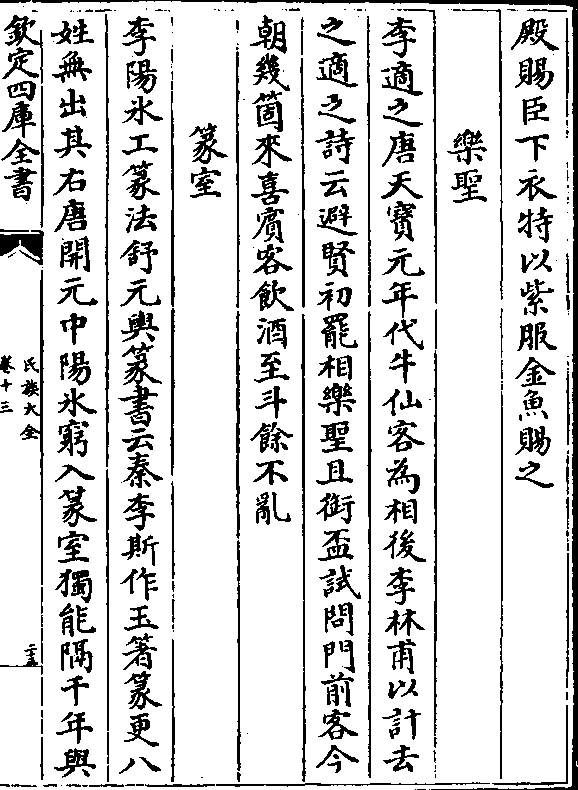 殿賜臣下衣特以紫服金魚賜之
樂聖
李適之唐天寶元年代牛仙客為相後李林甫以計去
之適之詩云避賢初罷相樂聖且銜盃試問門前客今
朝幾箇來喜賓客飲酒至斗餘不亂
篆室
李陽氷工篆法舒元輿篆書云秦李斯作玉箸篆更八
姓無出其右唐開元中陽氷窮入篆室獨能隔千年與
欽定四庫全書
氏族大全
卷十三
二十五